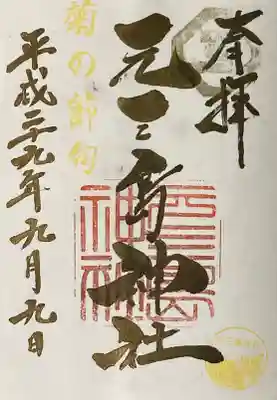 奉拝
元三島神社
三島
神社
菊の節句
平成二十九年九月九日